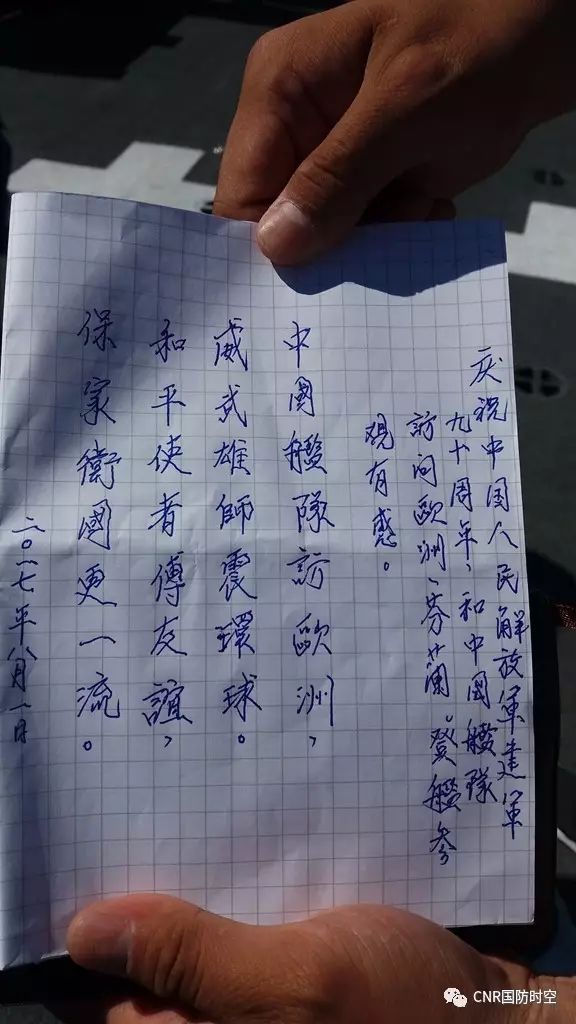 庆祝中国人民解放軍建軍
九十周年、和中國艦隊
訪问歐洲、芬兰蘭。登艦参
观有感。
中國艦隊訪歐洲,
威武雄師震環球。
和平使者傅友誼,
保家衛國更一流。
二〇一七年八月一日
CNR国防时空